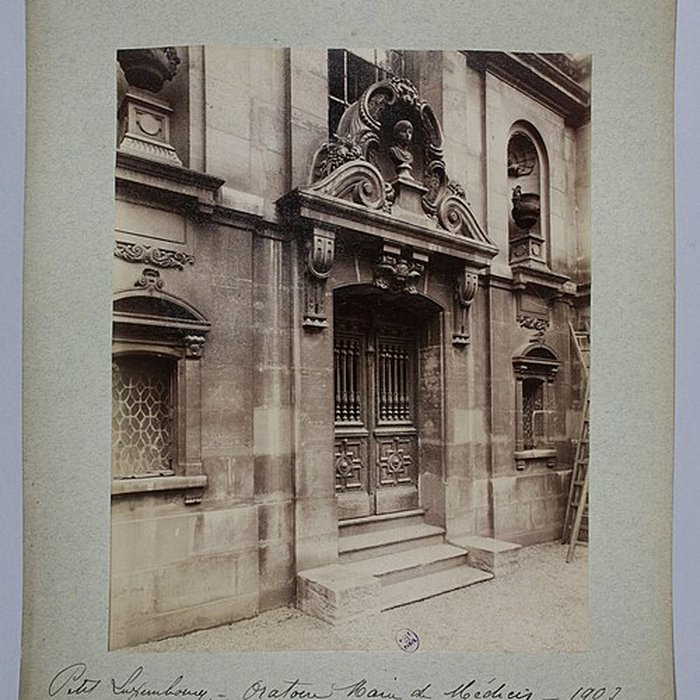 Petit Luxembourg – Oratoire Marie de Médicis – 1903